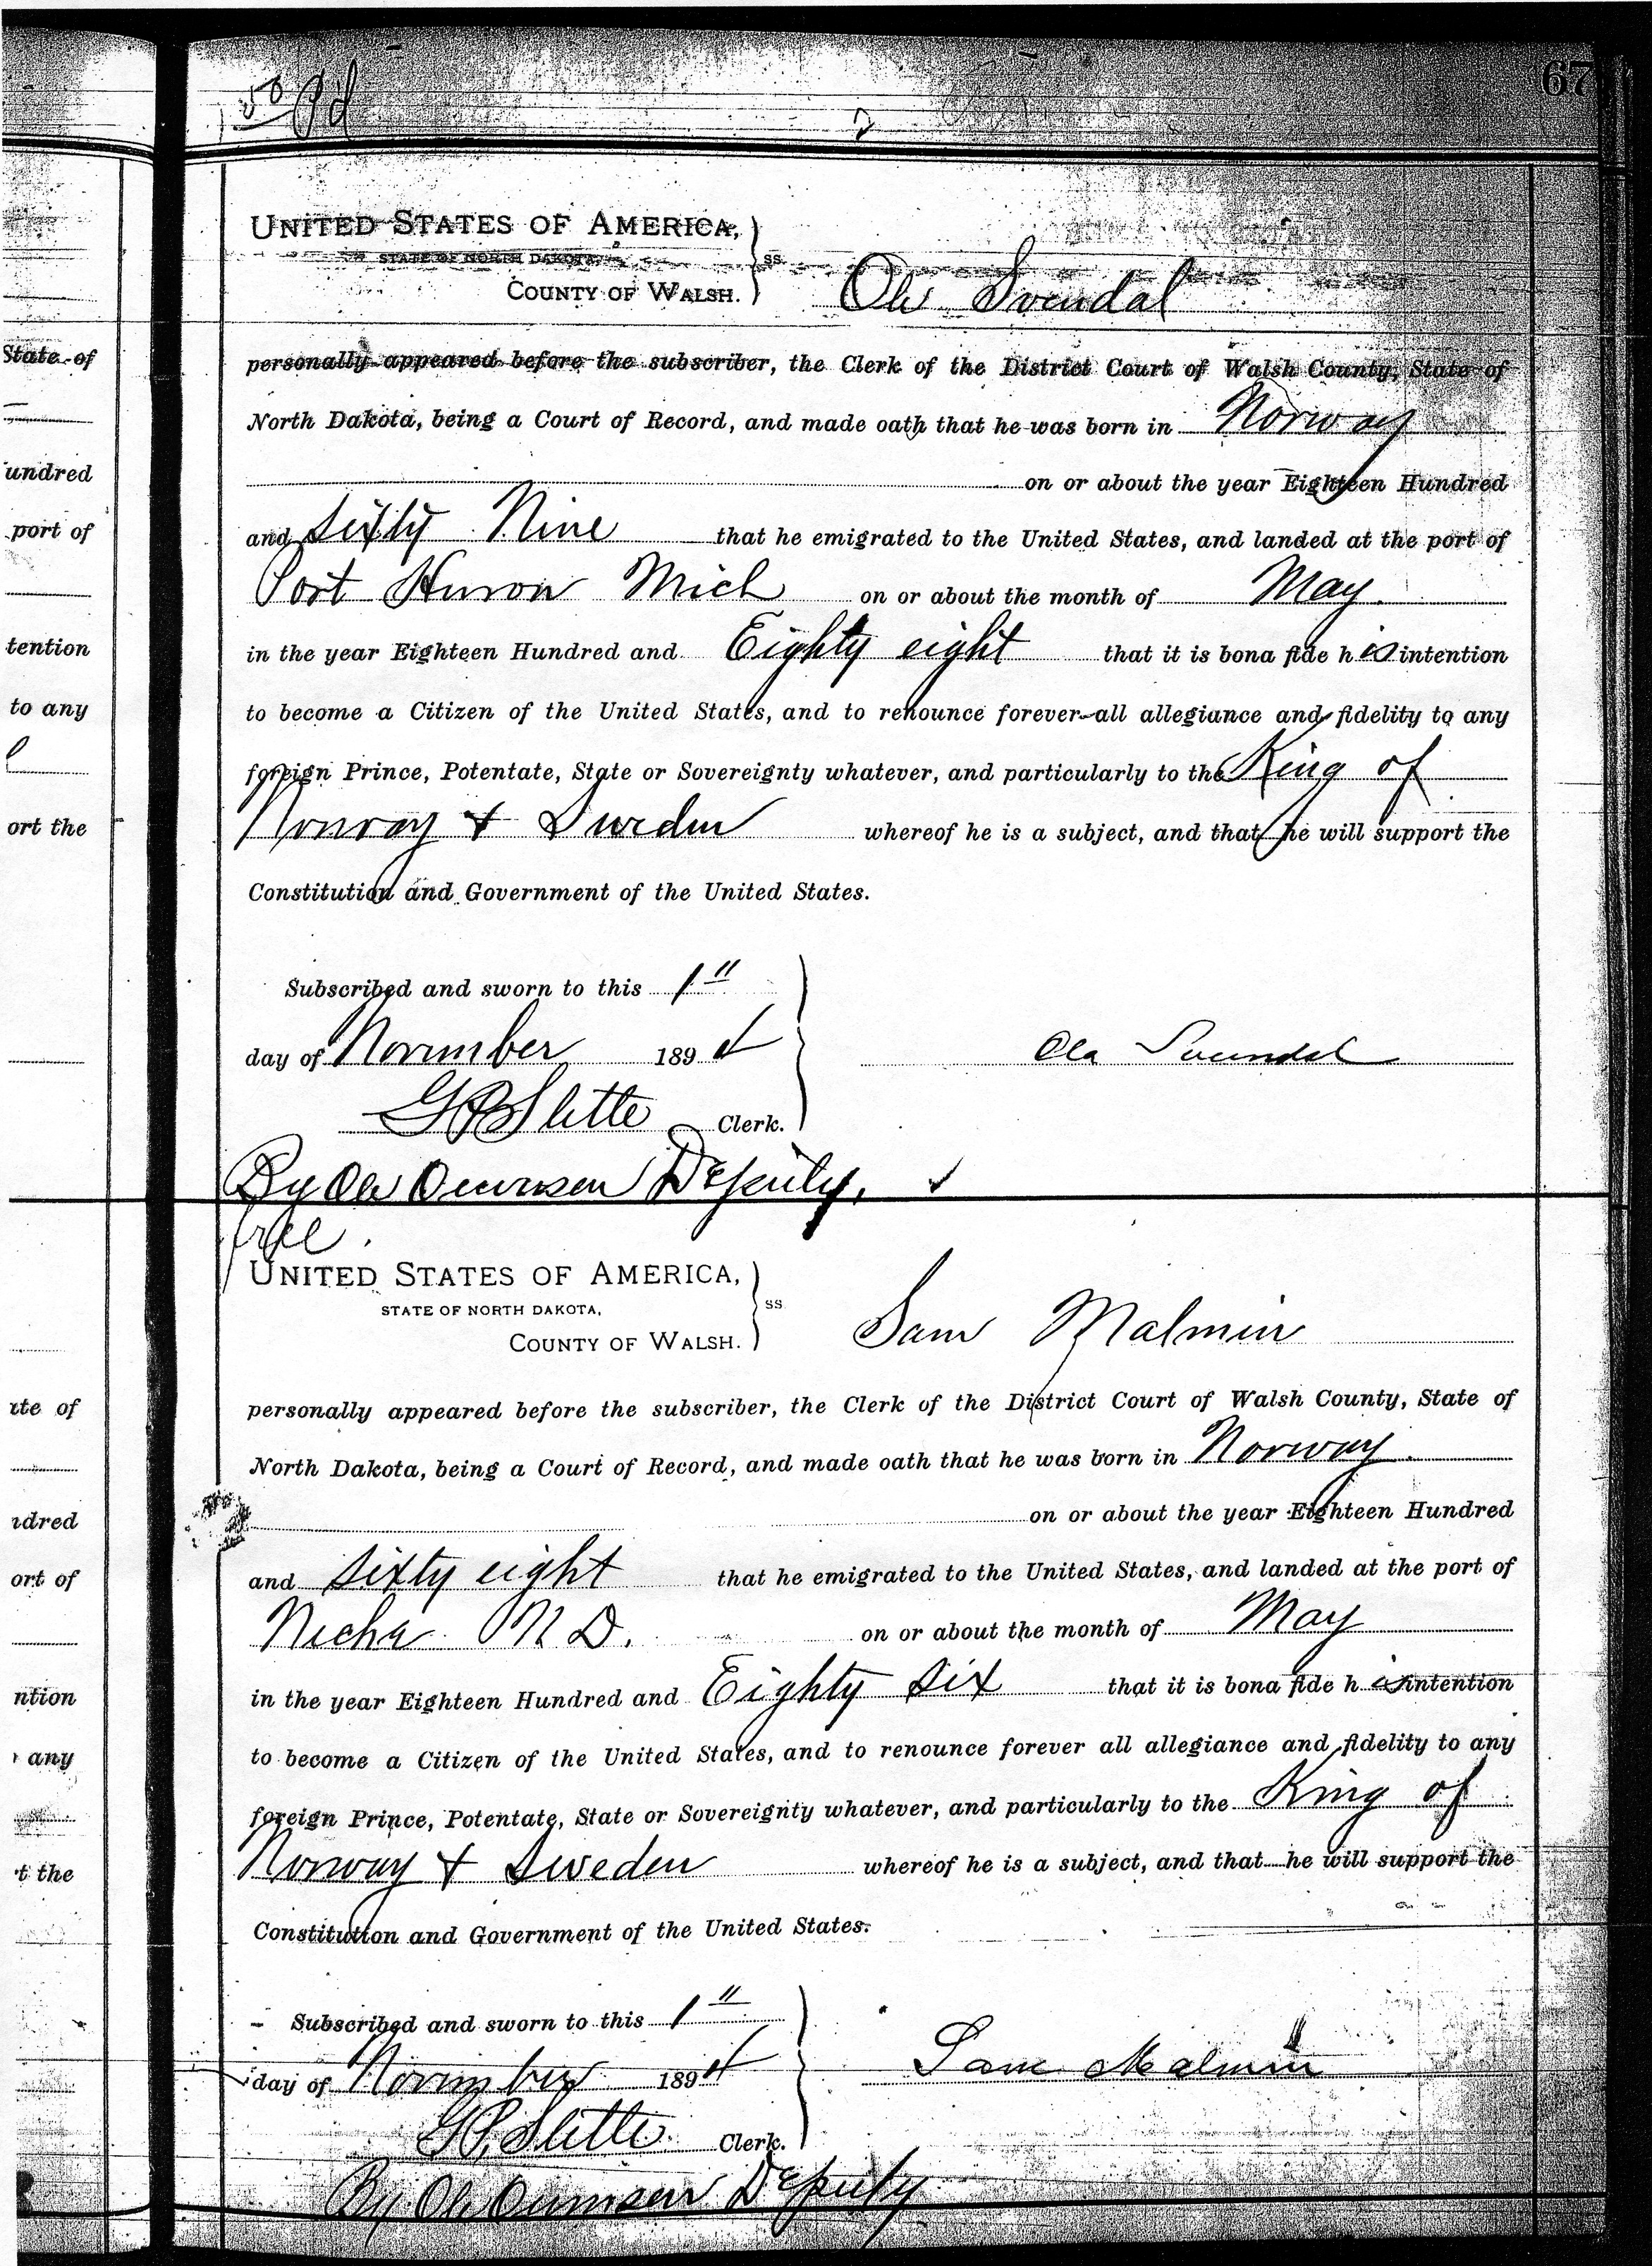 67
50 pd
UNITED STATES OF AMERICA,
STATE OF NORTH DAKOTA, ss.
COUNTY OF WALSH. Ole Svendal
personally appeared before the subscriber, the Clerk of the District Court of Walsh County, State of
North Dakota, being a Court of Record, and made oath that he was born in Norway
on or about the year Eighteen Hundred
and Sixty Nine that he emigrated to the United States, and landed at the port of
Port Huron Mich on or about the month of May
in the year Eighteen Hundred and Eighty eight that it is bona fide his intention
to become a Citizen of the United States, and to renounce forever all allegiance and fidelity to any
foreign Prince, Potentate, State or Sovereignty whatever, and particularly to the King of
Norway & Sweden whereof he is a subject, and that he will support the
Constitution and Government of the United States.
Subscribed and sworn to this 1"
day of November 1894 Ola Svendal
G P Slette Clerk.
By Ole Deputy.
UNITED STATES OF AMERICA,
STATE OF NORTH DAKOTA, ss.
COUNTY OF WALSH. Sam Malmin
personally appeared before the subscriber, the Clerk of the District Court of Walsh County, State of
North Dakota, being a Court of Record, and made oath that he was born in Norway
on or about the year Eighteen Hundred
and Sixty eight that he emigrated to the United States, and landed at the port of
Neche N D. on or about the month of May
in the year Eighteen Hundred and Eighty six that it is bona fide his intention
to become a Citizen of the United States, and to renounce forever all allegiance and fidelity to any
foreign Prince, Potentate, State or Sovereignty whatever, and particularly to the King of
Norway & Sweden whereof he is a subject, and that he will support the
Constitution and Government of the United States.
Subscribed and sworn to this 1"
day of November 1894 Sam Malmin
G P Slette Clerk.
By Ole Deputy
State of
undred
port of
tention
to any
ort the
ate of
ndred
ort of
ntion
any
t the